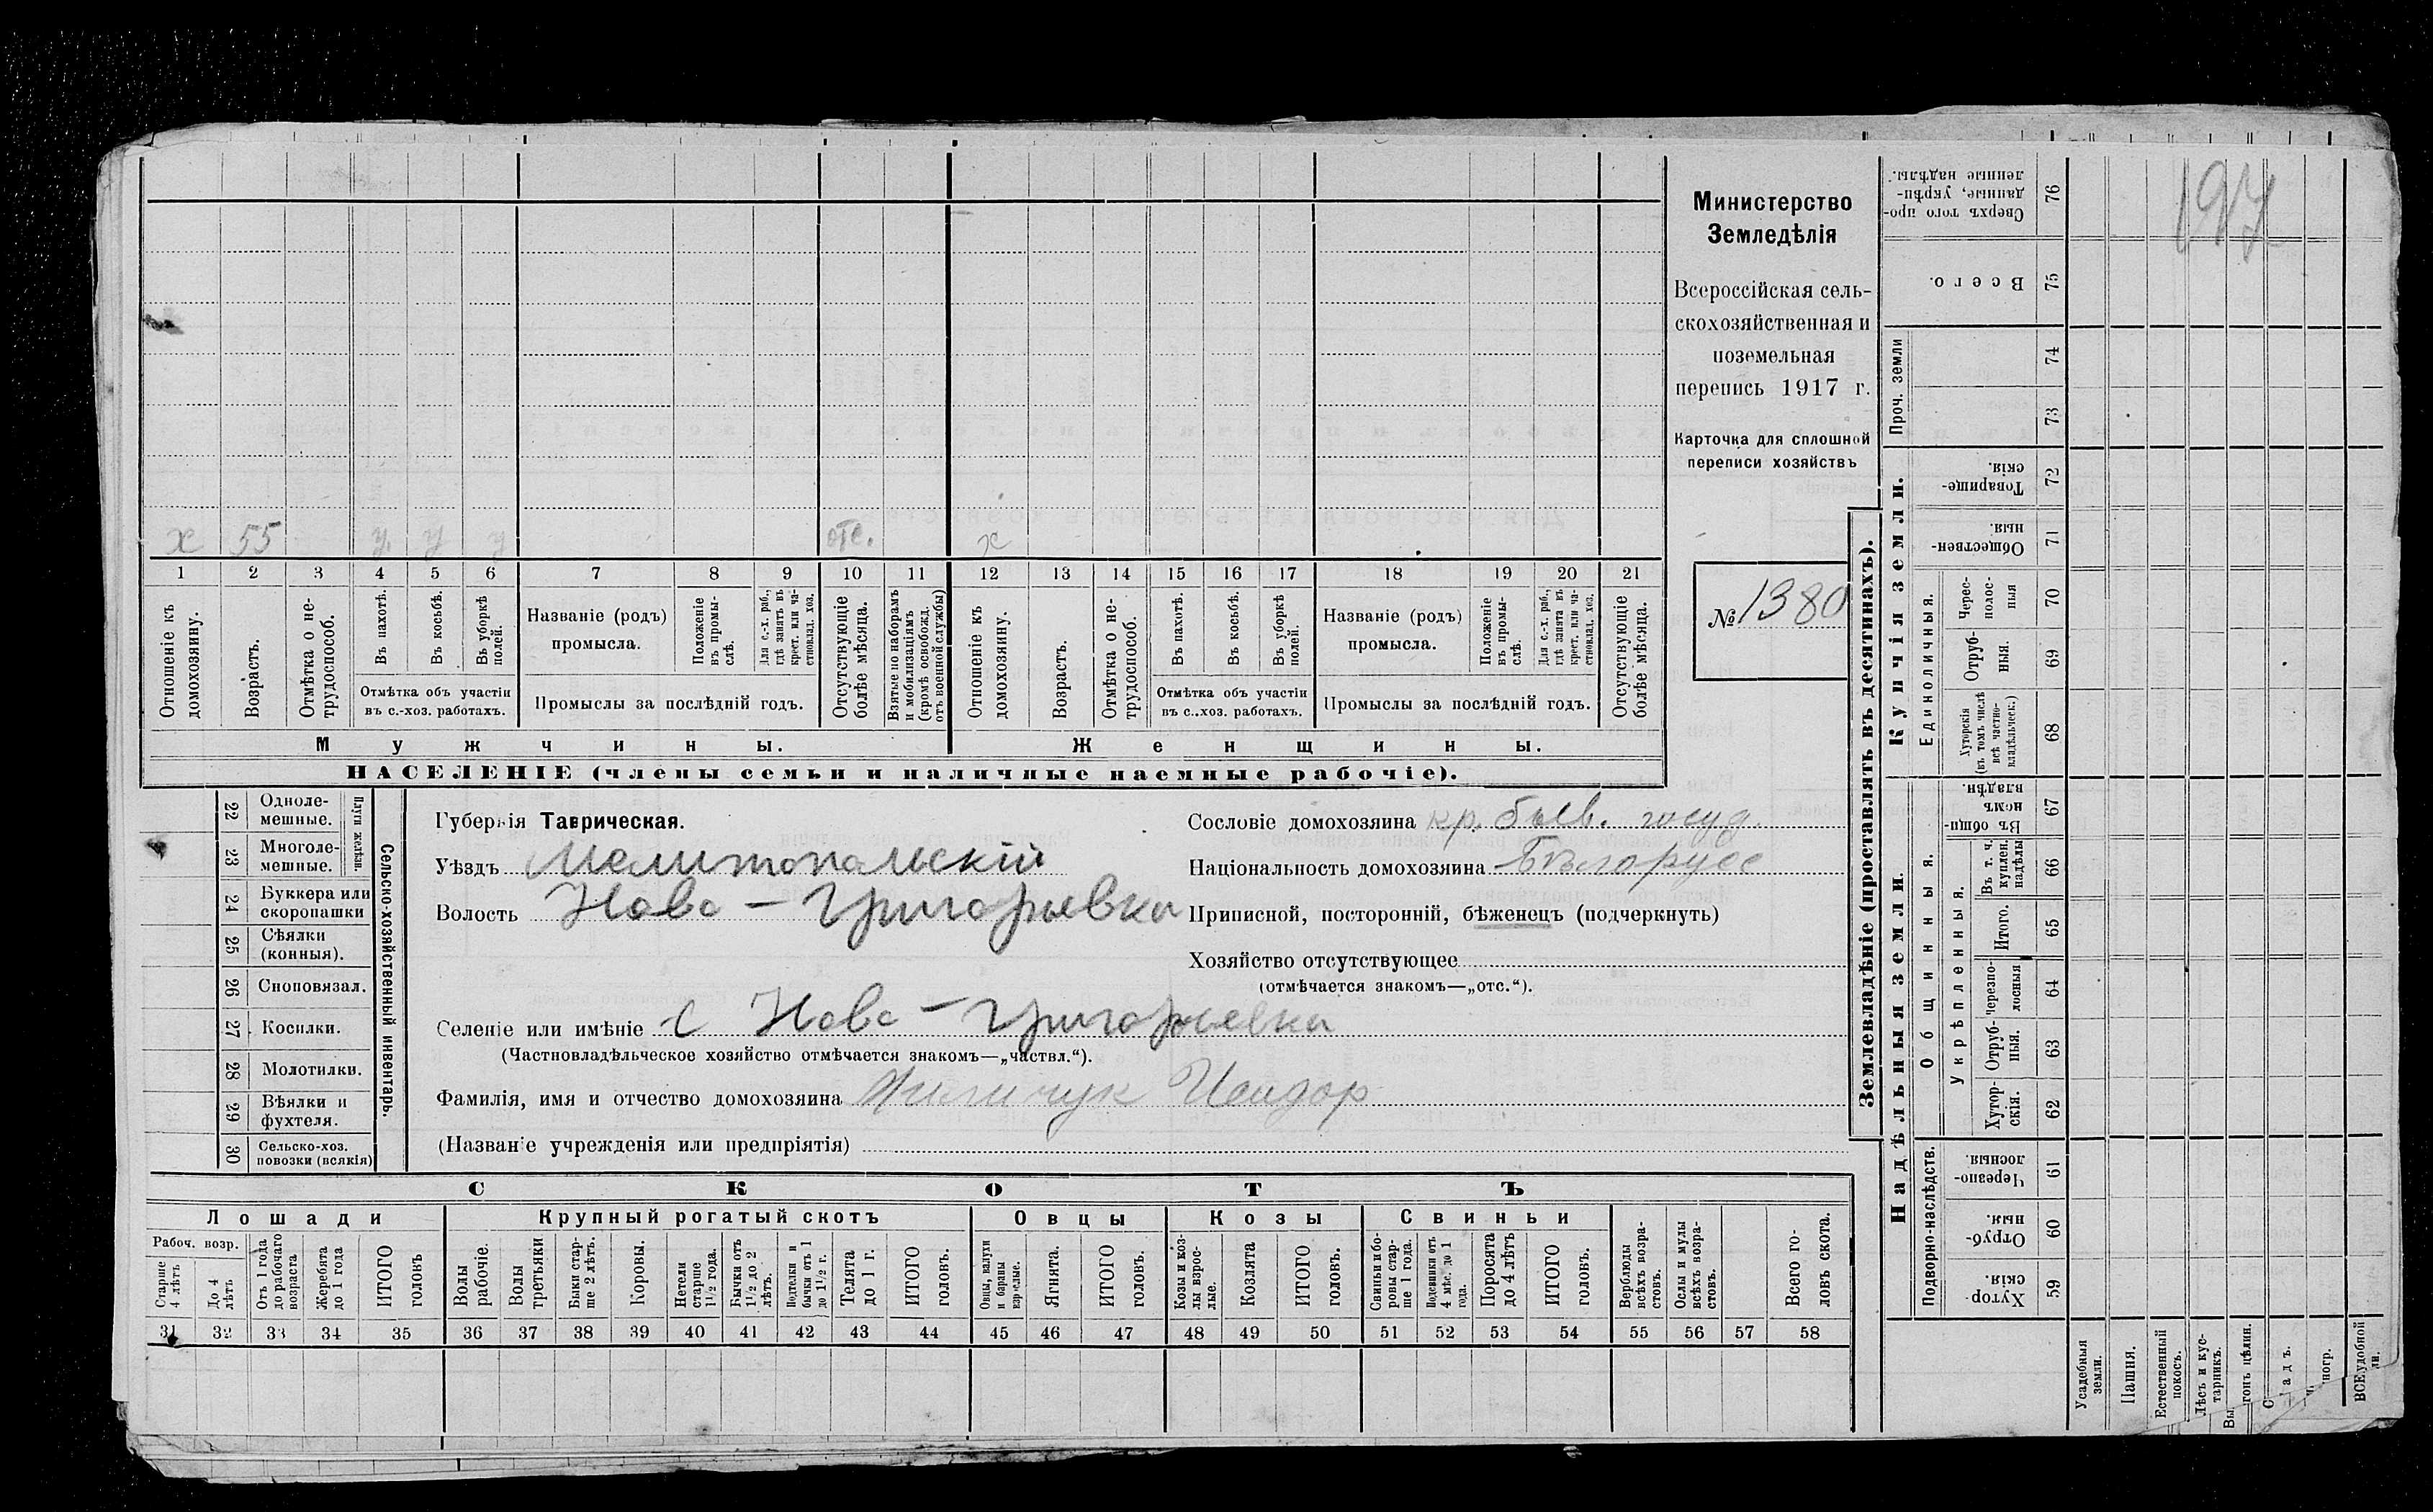 197
Министерство
Земледѣлія
Всероссійская сель-
скохозяйственная и
поземельная
перепись 1917 г.
Карточка для сплошной
переписи хозяйствъ
№ 1380
х 55 у у у отс. х
1 2 3 4 5 6 7 8 9 10 11 12 13 14 15 16 17 18 19 20 21
Отношеніе къ домохозяину.
Возрастъ.
Отмѣтка о не-трудоспособ.
Въ пахотѣ.
Въ косьбѣ.
Въ уборкѣ полей.
Отмѣтка объ участіи
въ с.-хоз. работахъ.
Названіе (родъ)
промысла.
Положеніе въ промы-слѣ.
Для с.-х. раб., гдѣ занятъ въ крест. или ча-стновлад. хоз.
Промыслы за послѣдній годъ.
Отсутствующіе болѣе мѣсяца.
Взятые по наборамъ и мобилизаціямъ (кромѣ освобожд. отъ военной службы)
Отношеніе къ домохозяину.
Возрастъ.
Отмѣтка о не-трудоспособ.
Въ пахотѣ.
Въ косьбѣ.
Въ уборкѣ полей.
Отмѣтка объ участіи
въ с.-хоз. работахъ.
Названіе (родъ)
промысла.
Положеніе въ промы-слѣ.
Для с.-х. раб., гдѣ занята въ крест. или ча-стновлад. хоз.
Промыслы за послѣдній годъ.
Отсутствующіе болѣе мѣсяца.
Мужчины. Женщины.
НАСЕЛЕНІЕ (члены семьи и наличные наемные рабочіе).
22 Одноле-мешные.
23 Многоле-мешные.
Плуги желѣзн.
24 Буккера или скоропашки
25 Сѣялки (конныя).
26 Сноповязал.
27 Косилки.
28 Молотилки.
29 Вѣялки и фухтеля.
30 Сельско-хоз. повозки (всякія)
Сельско-хозяйственный инвентарь.
Губернія Таврическая.
Уѣздъ Мелитопольскій
Волость Ново-Григорьевка
Селеніе или имѣніе с Ново-Григорьевка
(Частновладѣльческое хозяйство отмѣчается знакомъ—„частвл.“).
Фамилія, имя и отчество домохозяина Исидор
(Названіе учрежденія или предпріятія)
Сословіе домохозяина кр. быв. госуд.
Національность домохозяина Бѣлорусс
Приписной, посторонній, бѣженецъ (подчеркнуть)
Хозяйство отсутствующее
(отмѣчается знакомъ—„отс.“).
СКОТЪ
Лошади Крупный рогатый скотъ Овцы Козы Свиньи
Рабоч. возр.
Старше 4 лѣтъ
До 4 лѣтъ
Отъ 1 года до рабочаго возраста
Жеребята до 1 года
ИТОГО головъ
Волы рабочіе.
Волы третьяки
Быки стар-ше 2 лѣтъ.
Коровы.
Нетели старше 1½ года.
Бычки отъ 1½ до 2 лѣтъ.
Подтелки и бычки отъ 1 до 1½ г.
Телята до 1 г.
ИТОГО головъ.
Овцы, валухи и бараны взрослые.
Ягнята.
ИТОГО головъ.
Козы и коз-лы взрос-лые.
Козлята
ИТОГО головъ.
Свиньи и бо-ровы стар-ше 1 года.
Подсвинки отъ 4 мѣс. до 1 года.
Поросята до 4 лѣтъ
ИТОГО головъ.
Верблюды всѣхъ возра-стовъ.
Ослы и мулы всѣхъ возра-стовъ.
Всего го-ловъ скота.
31 32 33 34 35 36 37 38 39 40 41 42 43 44 45 46 47 48 49 50 51 52 53 54 55 56 57 58
Землевладѣніе (проставлять въ десятинахъ).
Купчія земли.
Проч. земли
Единоличныя.
Сверхъ того про-данные, укрѣп-ленные надѣлы. 76
Всего. 75
74
73
Товарище-скія. 72
Обществен-ныя. 71
Черес-полос-ныя 70
Отруб-ныя. 69
Хуторскія (въ томъ числѣ всѣ частно-владѣльческ.) 68
Надѣльныя земли.
Общинныя.
Укрѣпленныя.
Въ общи-номъ владѣн. 67
Въ т. ч. куплен. надѣлы 66
Итого. 65
черезпо-лосныя 64
Отруб-ныя. 63
Хутор-скія. 62
Подворно-наслѣдств.
Черезпо-лосныя. 61
Отруб-ныя. 60
Хутор-скія. 59
Усадебныя земли.
Пашня.
Естественный покосъ.
Лѣсъ и кус-тарникъ.